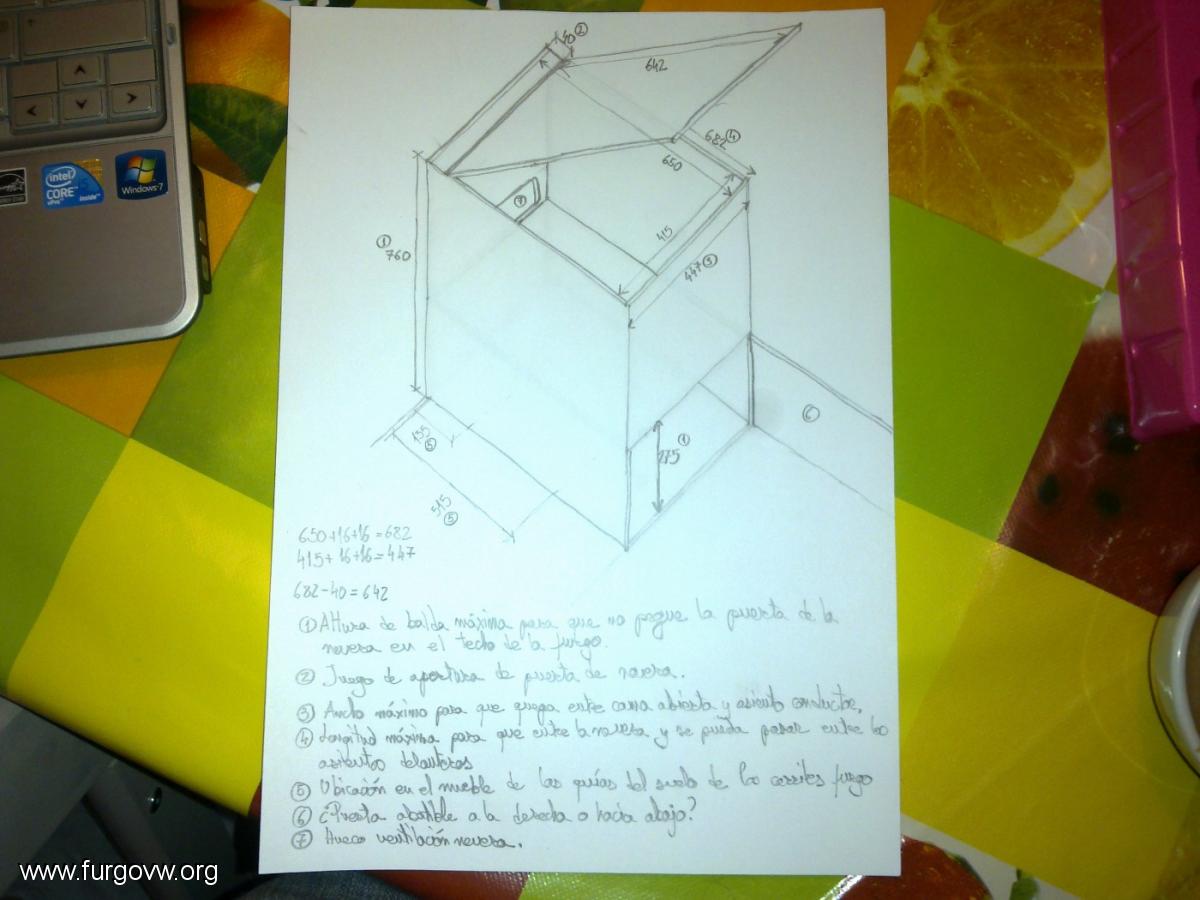 40 ②
642
682 ④
650
⑦
415
447 ③
① 760
⑥
275 ①
135 ⑤
515 ⑤
650+16+16=682
415+16+16=447
682-40=642
① Altura de balda máxima para que no pegue la puerta de la
nevera en el techo de la furgo.
② Juego de apertura de puerta de nevera.
③ Ancho máximo para que quepa entre cama abierta y asiento conductor.
④ Longitud máxima para que entre la nevera y se pueda pasar entre los
asientos delanteros
⑤ Ubicación en el mueble de las guías del suelo de los carriles furgo
⑥ ¿Puerta abatible a la derecha o hacia abajo?
⑦ Hueco ventilación nevera.
intel
CORE i5
vPro inside
Windows 7
www.furgovw.org